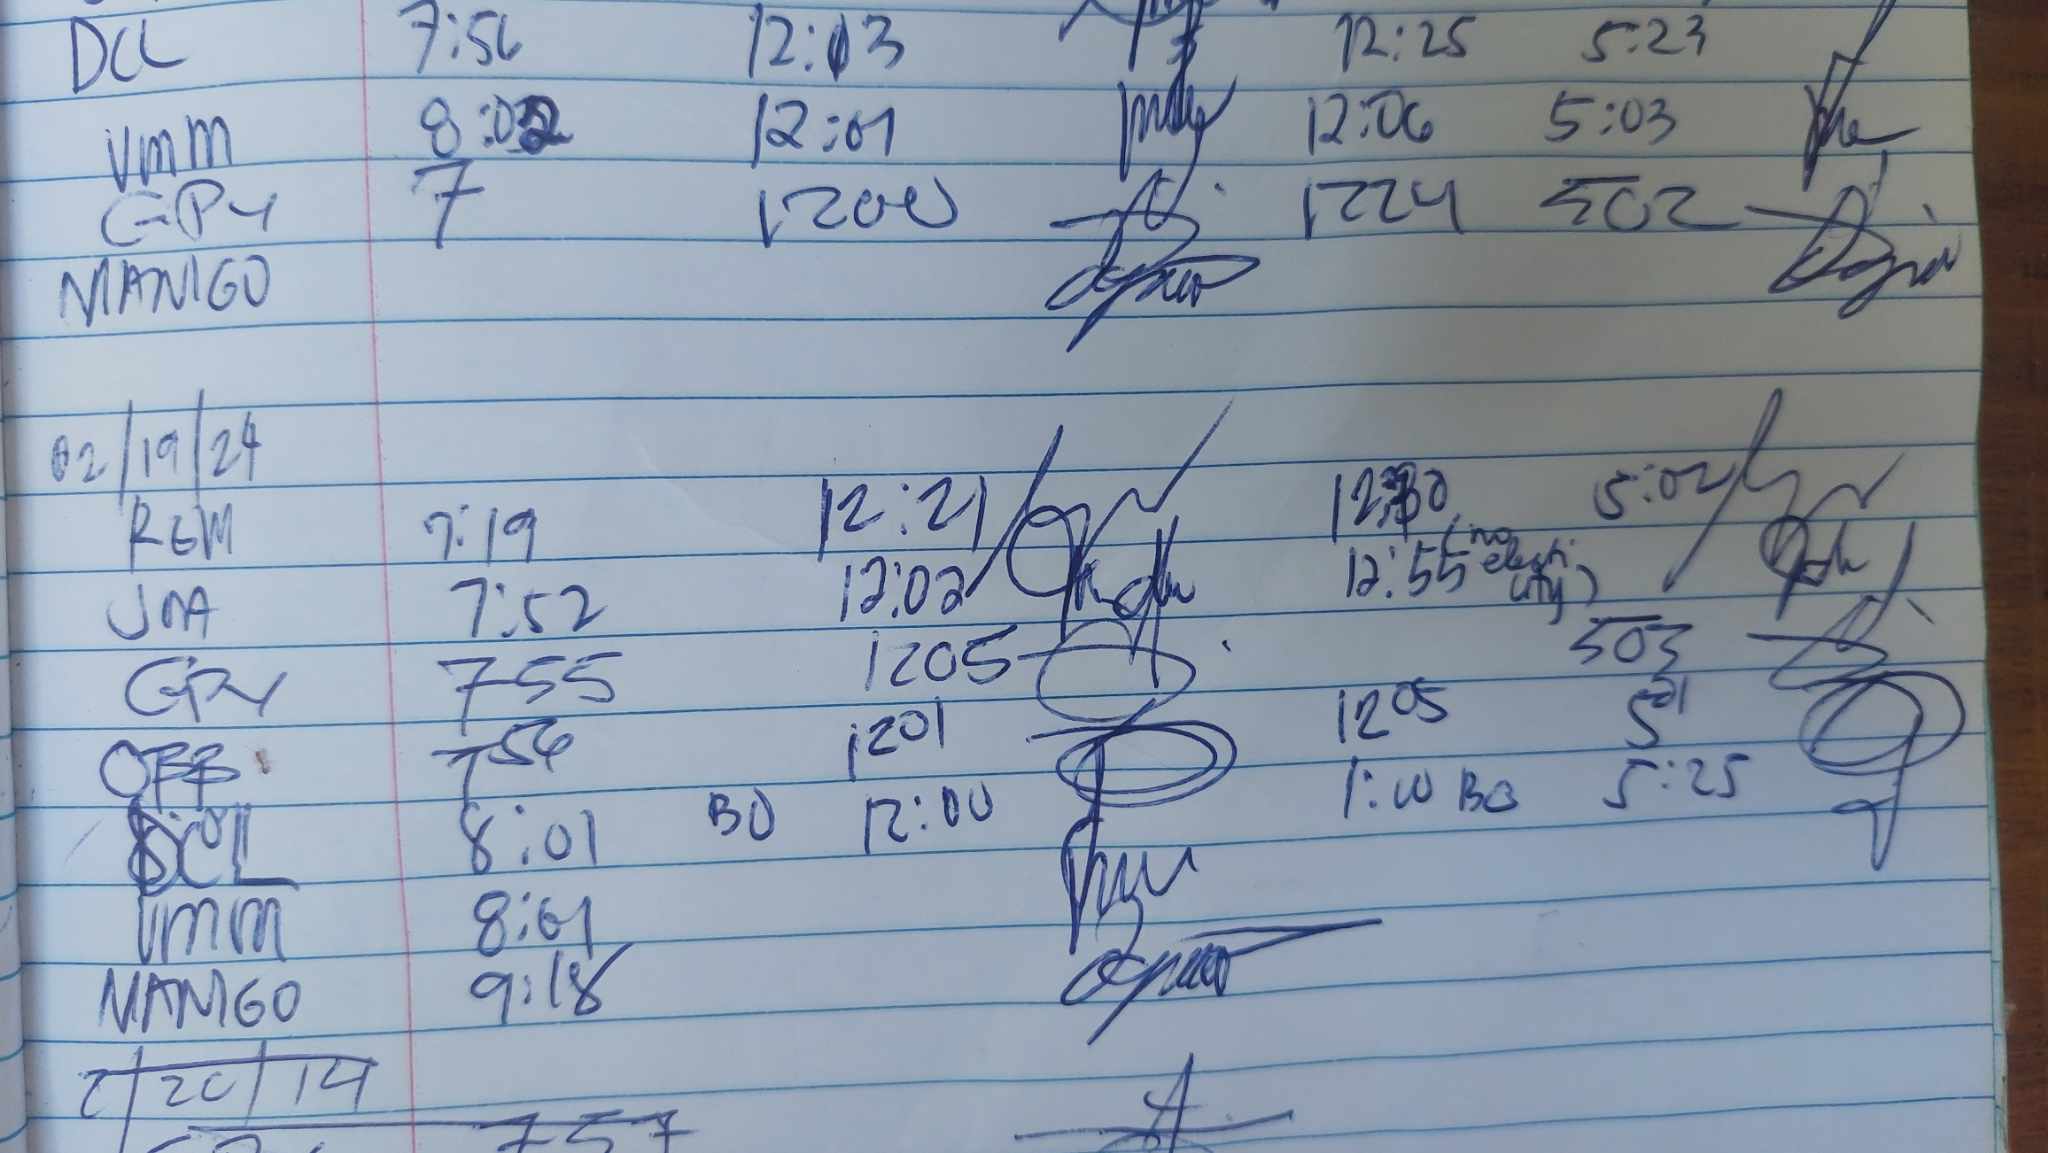 DCL 7:56 12:13 12:25 5:23
VMM 8:02 12:01 12:06 5:03
GPY 7 1200 1224 502
MANIGO
02/19/24
RGM 7:19 12:21 5:02
JOA 7:52 12:02 12:55 (no electricity)
GPY 755 1205 503
OFF 756 1201 1205 501
DCL 8:01 BO 12:00 1:00 BO 5:25
VMM 8:01
MANIGO 9:18
2/20/
757